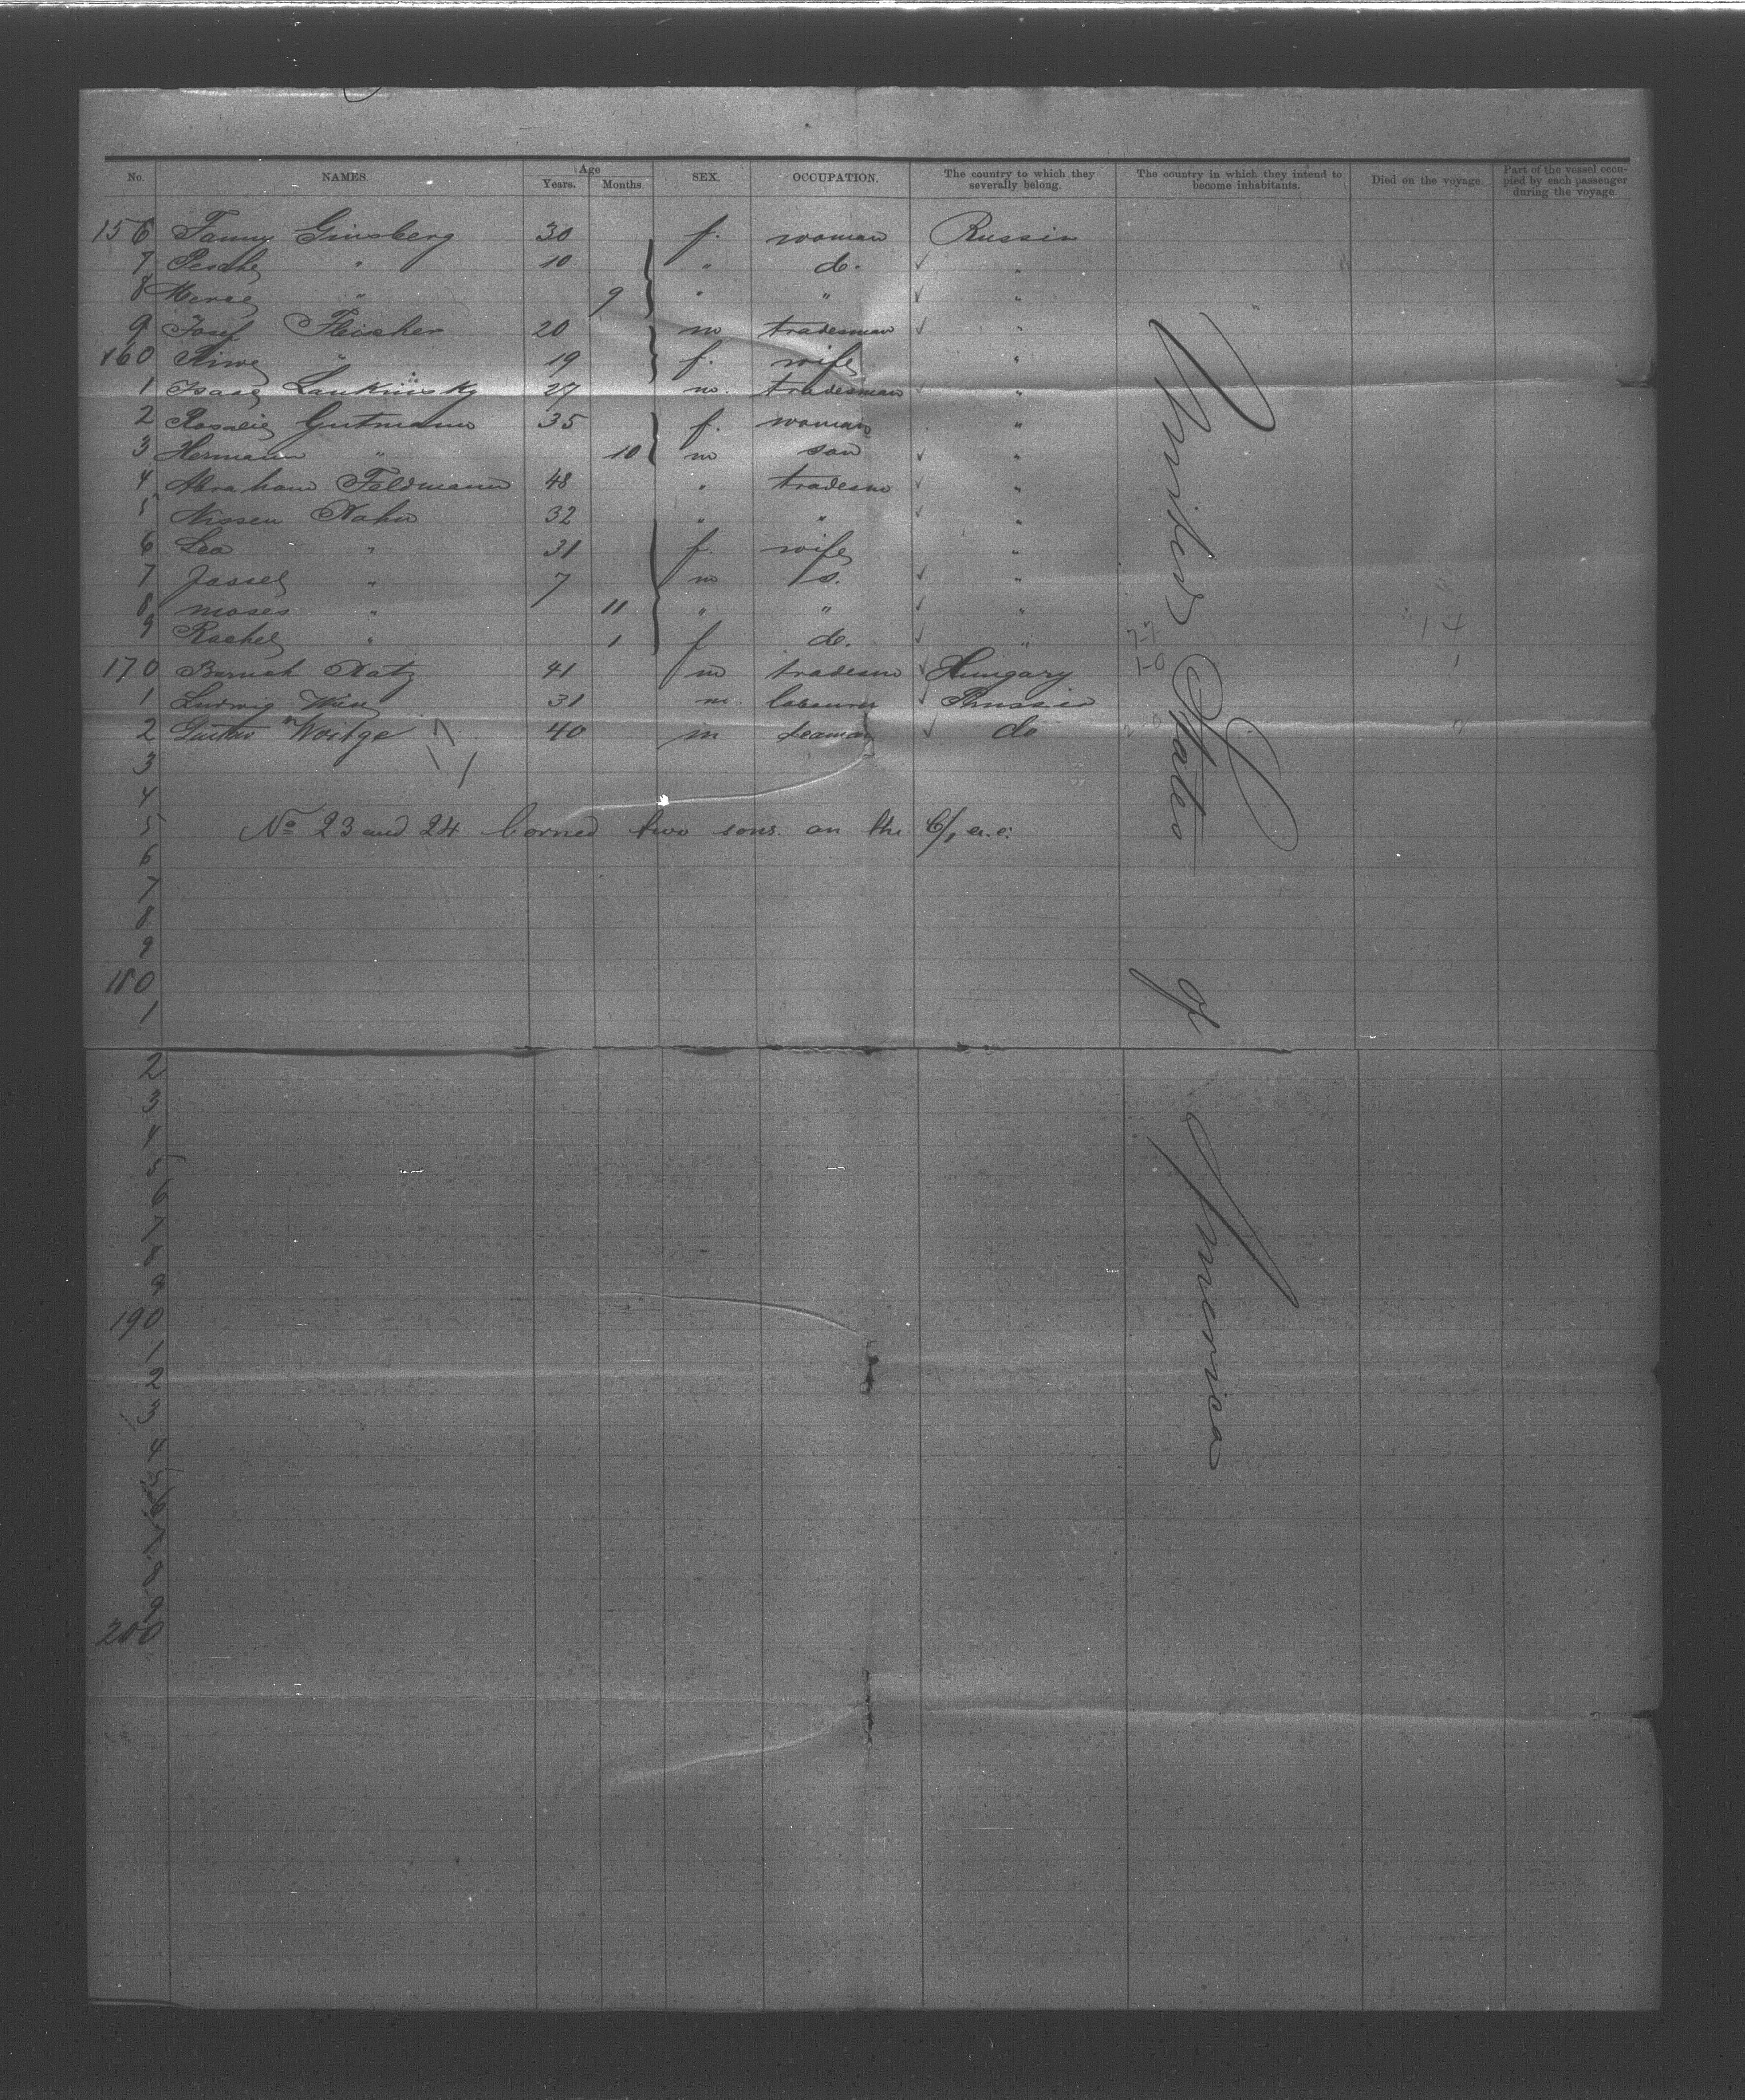 No. NAMES. Age Years. Months. SEX. OCCUPATION. The country to which they severally belong. The country in which they intend to become inhabitants. Died on the voyage. Part of the vessel occupied by each passenger during the voyage.
156 Fanny Ginsberg 30 f. woman Russia
7 Pesche " 10 " do. ✓ "
8 " 9 " " ✓ "
9 Josef Fleischer 20 m tradesman ✓ "
160 " 19 f. wife "
1 Isaac 27 m. tradesman ✓ "
2 Rosalie Gutmann 35 f. woman "
3 Hermann " 10 m son ✓ "
4 Abraham Feldmann 48 " tradesm ✓ "
5 Nissen 32 " " ✓ "
6 Lea " 31 f. wife "
7 Jossel " 7 m s. ✓ "
8 Moses " 11 " " ✓ "
9 Rachel " 1 f do. ✓ " 14
170 Baruch Katz 41 m tradesm ✓ Hungary 1
1 Ludwig 31 m. labourer ✓ Prussia
2 Gustav Woitge 40 m seaman ✓ do
3
4
5 No 23 and 24 borned two sons on the 6/
6
7
8
9
180
1
2
3
4
5
6
7
8
9
190
1
2
3
4
5
6
7
8
9
200
United States of America